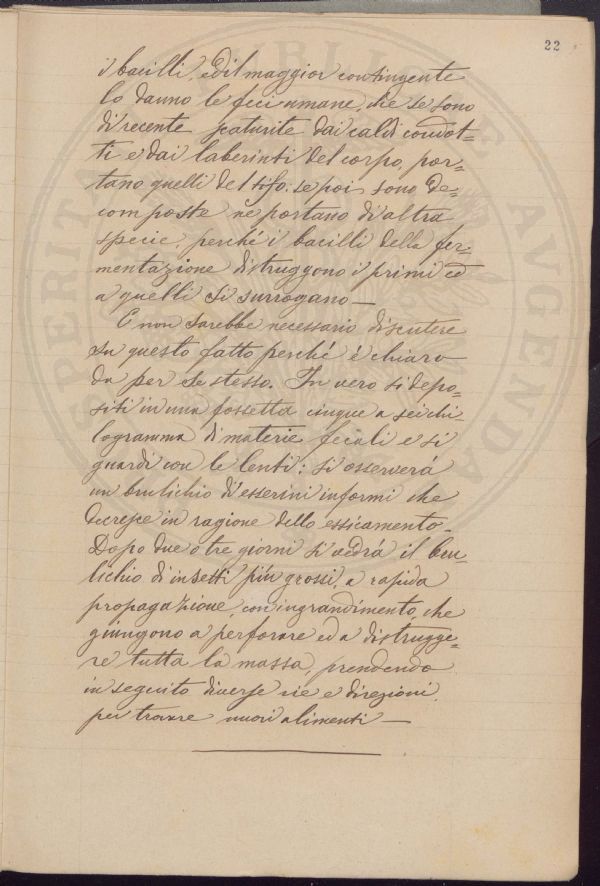 22
i bacilli, ed il maggior contingente
lo danno le feci umane, che se sono
di recente scaturite dai caldi condot=
ti e dai laberinti del corpo, por=
tano quelli del tifo: se poi sono de=
composte ne portano di altra
specie, perché i bacilli della fer=
mentazione distruggono i primi ed
a quelli si surrogano —
E non sarebbe necessario discutere
su questo fatto perché é chiaro
da per se stesso. In vero si depo=
siti in una fossetta cinque a sei chi=
logramma di materie fecali e si
guardi con le lenti: si osserverá
un brulichio di esserini informi che
decresce in ragione dello essicamento.
Dopo due o tre giorni si vedrá il bru=
lichio di insetti piú grossi, a rapida
propagazione, con ingrandimento, che
giungono a perforare ed a distrugge=
re tutta la massa, prendendo
in seguito diverse vie e direzioni
per trovare nuovi alimenti —
PERITA
PUBLICAE
AVGENDA